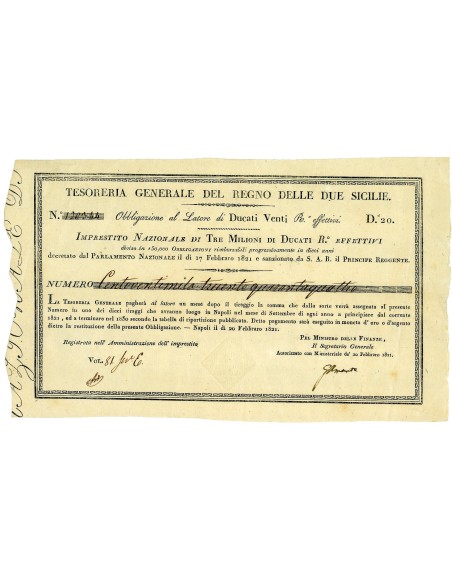 TESORERIA GENERALE DEL REGNO DELLE DUE SICILIE.
N.° 120344 Obbligazione al Latore di Ducati Venti R.ⁿ effettivi. D.ⁱ 20.
IMPRESTITO NAZIONALE DI TRE MILIONI DI DUCATI R.ⁿ EFFETTIVI
divisa in 150,000 OBBLIGAZIONI rimborsabili progressivamente in dieci anni
decretato dal PARLAMENTO NAZIONALE il dì 17 Febbraro 1821 e sanzionato da S. A. R. il PRINCIPE REGGENTE.
NUMERO Centoventimila trecento quarantaquattro
LA TESORERIA GENERALE pagherà al latore un mese dopo il tiraggio la somma che dalla sorte verrà assegnata al presente
Numero in uno dei dieci tiraggi che avranno luogo in Napoli nel mese di Settembre di ogni anno a principiare dal corrente
1821, ed a terminare nel 1830 secondo la tabella di ripartizione pubblicata. Detto pagamento sarà eseguito in moneta d' oro o d'argento
dietro la restituzione della presente Obbligazione. — Napoli il dì 20 Febbraro 1821.
Registrata nell' Amministrazione dell' imprestito
VOL. 81
PEL MINISTRO DELLE FINANZE,
Il Segretario Generale
Autorizzato con Ministeriale de' 20 Febbraro 1821.